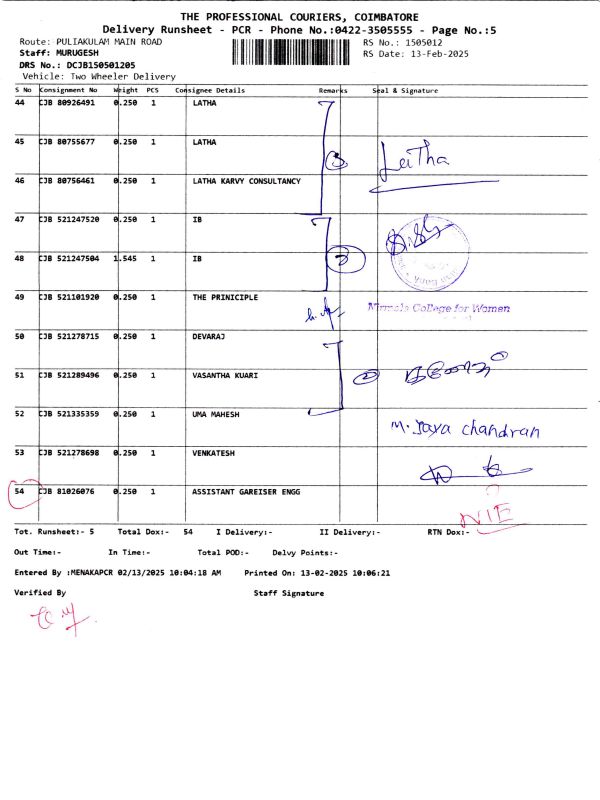 THE PROFESSIONAL COURIERS, COIMBATORE
Delivery Runsheet - PCR - Phone No.:0422-3505555 - Page No.:5
Route: PULIAKULAM MAIN ROAD RS No.: 1505012
Staff: MURUGESH RS Date: 13-Feb-2025
DRS No.: DCJB150501205
Vehicle: Two Wheeler Delivery
S No Consignment No Weight PCS Consignee Details Remarks Seal & Signature
44 CJB 80926491 0.250 1 LATHA
45 CJB 80755677 0.250 1 LATHA
3 Latha
46 CJB 80756461 0.250 1 LATHA KARVY CONSULTANCY
47 CJB 521247520 0.250 1 IB
48 CJB 521247504 1.545 1 IB
49 CJB 521101920 0.250 1 THE PRINICIPLE Nirmala College for Women
50 CJB 521278715 0.250 1 DEVARAJ
51 CJB 521289496 0.250 1 VASANTHA KUARI 2
52 CJB 521335359 0.250 1 UMA MAHESH M. Jaya chandran
53 CJB 521278698 0.250 1 VENKATESH
54 CJB 81026076 0.250 1 ASSISTANT GAREISER ENGG
NIE
Tot. Runsheet:- 5 Total Dox:- 54 I Delivery:- II Delivery:- RTN Dox:-
Out Time:- In Time:- Total POD:- Delvy Points:-
Entered By :MENAKAPCR 02/13/2025 10:04:18 AM Printed On: 13-02-2025 10:06:21
Verified By Staff Signature